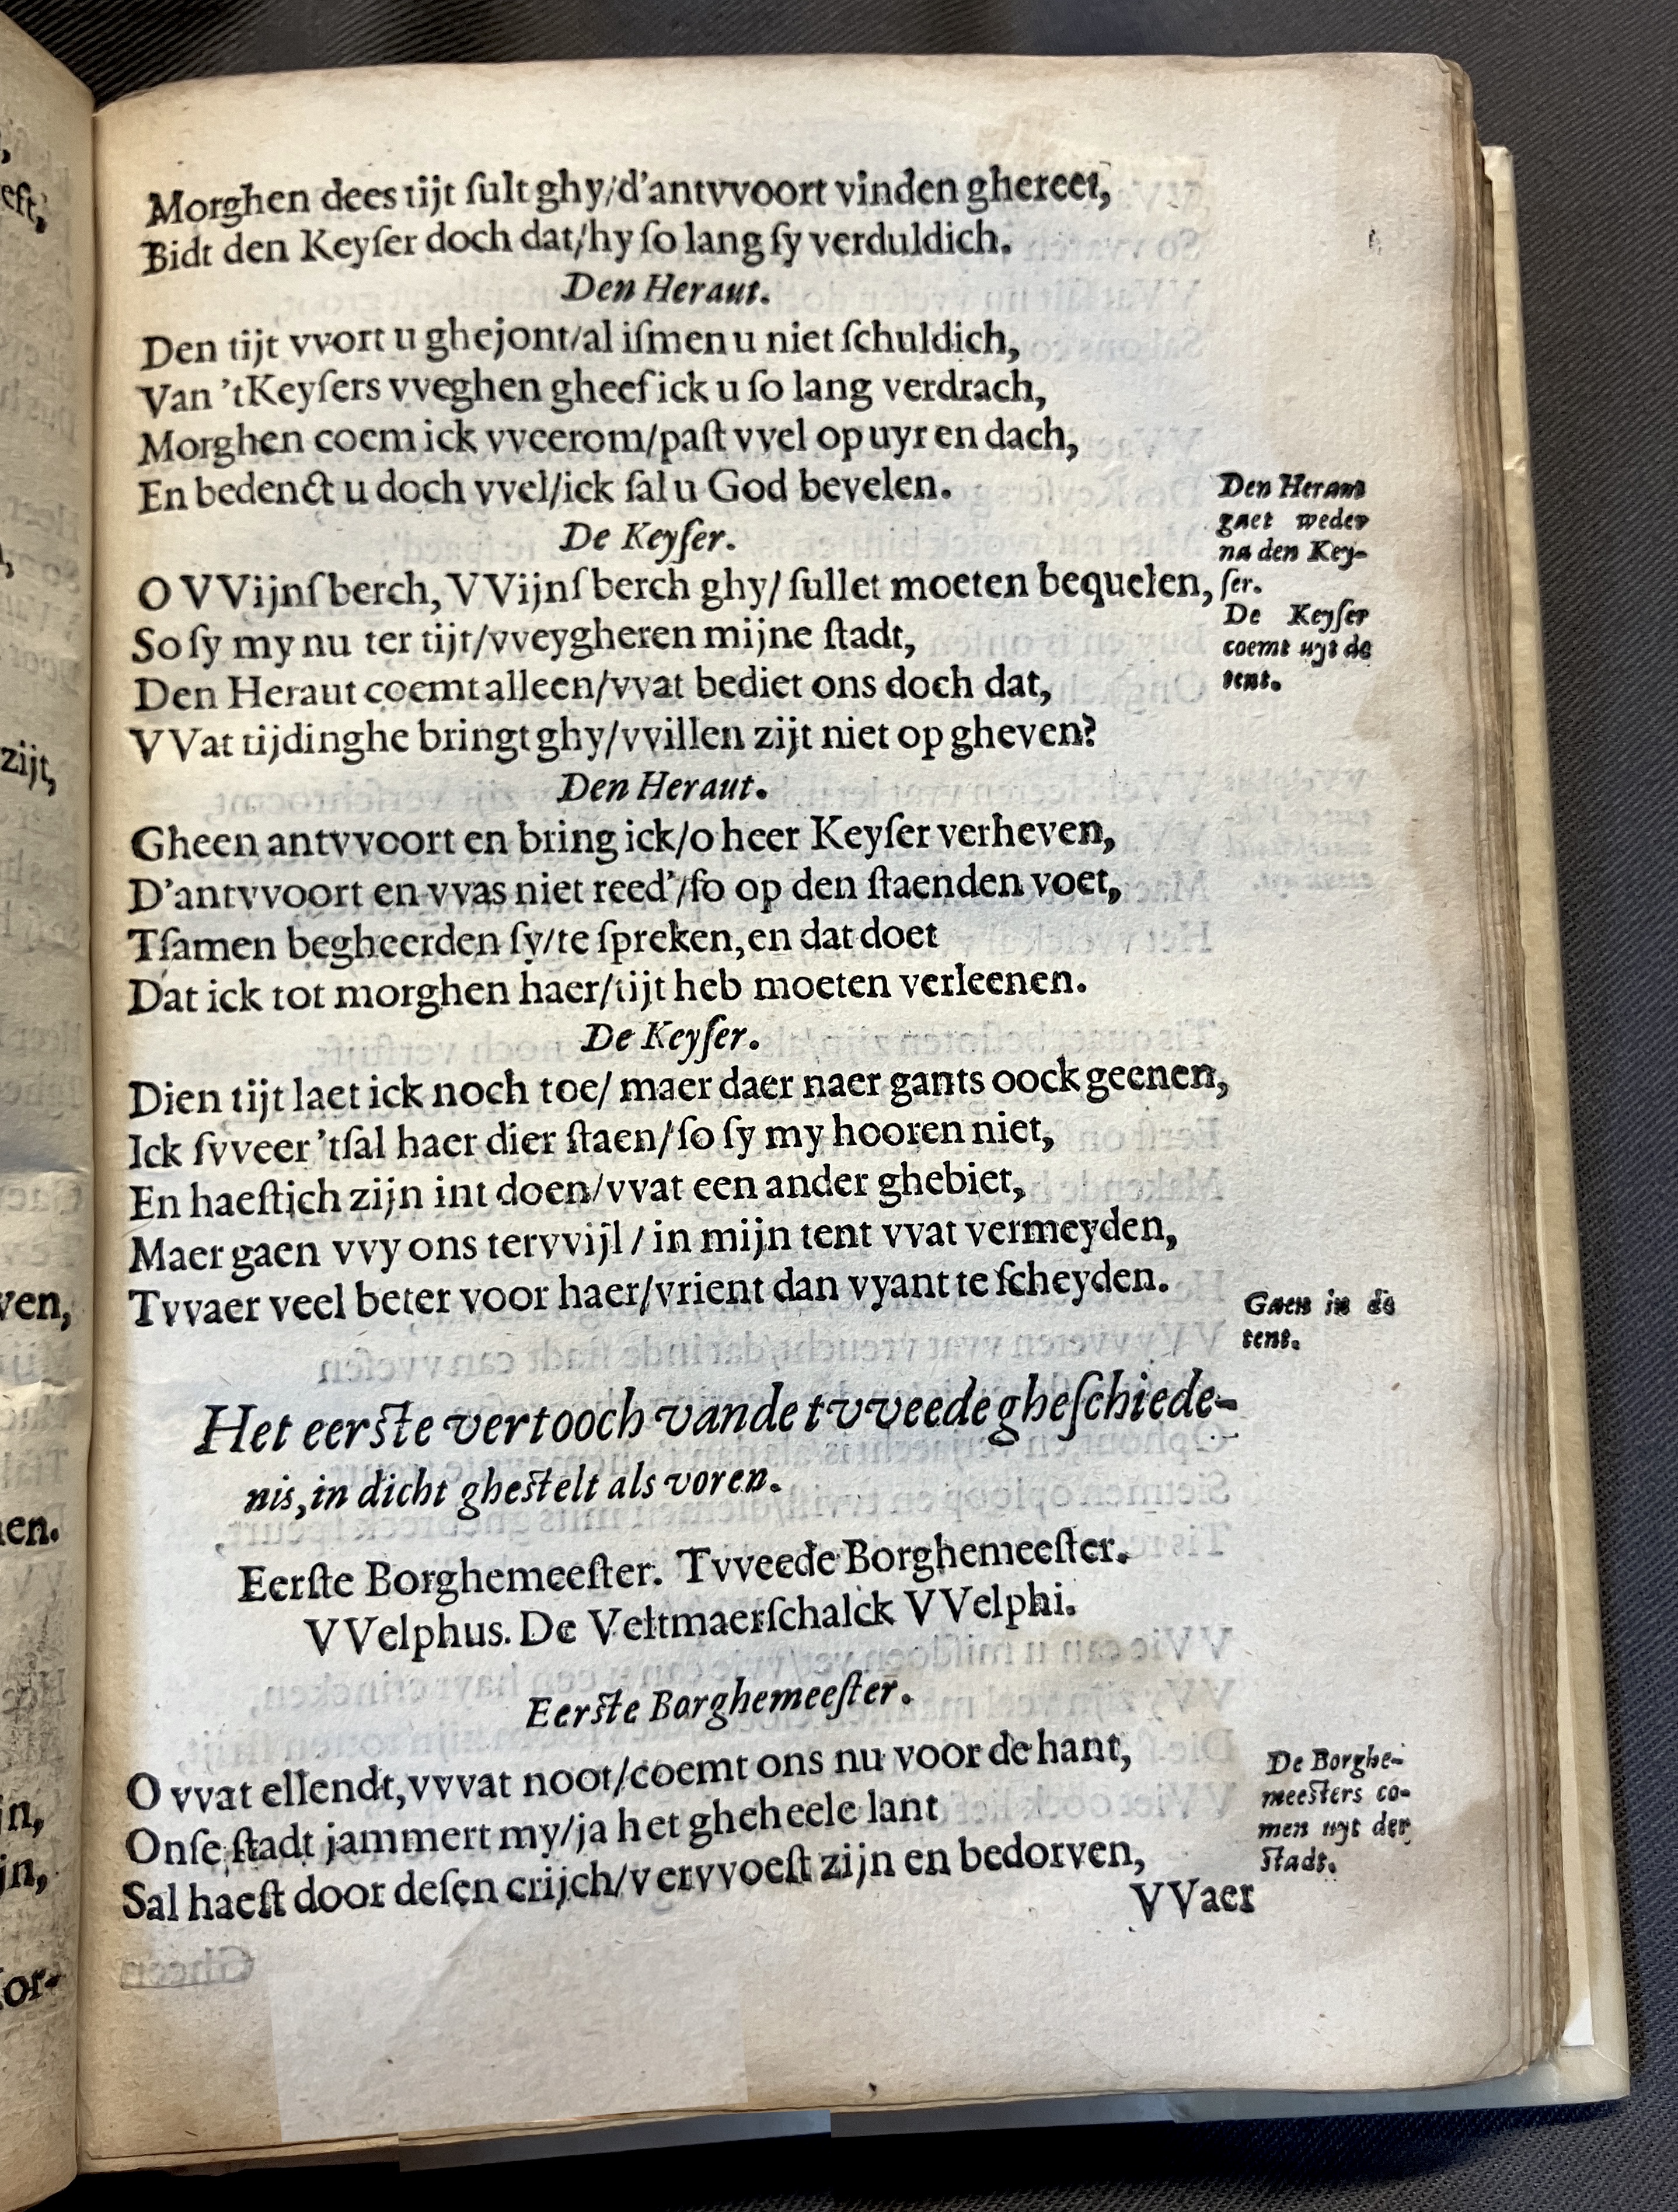 Morghen dees tijt ſult ghy/d'antvvoort vinden ghereet,
Bidt den Keyſer doch dat/hy ſo lang ſy verduldich.
Den Heraut.
Den tijt vvort u ghejont/al iſmen u niet ſchuldich,
Van 'tKeyſers vveghen gheef ick u ſo lang verdrach,
Morghen coem ick vveerom/paſt vvel op uyr en dach,
En bedenct u doch vvel/ick ſal u God bevelen.
Den Heraut
gaet weder
na den Key-
ſer.
De Keyſer.
O VVijnſberch, VVijnſberch ghy/ ſullet moeten bequelen,
So ſy my nu ter tijt/vveygheren mijne ſtadt,
Den Heraut coemt alleen/vvat bediet ons doch dat,
VVat tijdinghe bringt ghy/vvillen zijt niet op gheven?
De Keyſer
coemt uyt de
tent.
Den Heraut.
Gheen antvvoort en bring ick/o heer Keyſer verheven,
D'antvvoort en vvas niet reed'/ſo op den ſtaenden voet,
Tſamen begheerden ſy/te ſpreken, en dat doet
Dat ick tot morghen haer/tijt heb moeten verleenen.
De Keyſer.
Dien tijt laet ick noch toe/ maer daer naer gants oock geenen,
Ick ſvveer 'tſal haer dier ſtaen/ſo ſy my hooren niet,
En haeſtich zijn int doen/vvat een ander ghebiet,
Maer gaen vvy ons tervvijl / in mijn tent vvat vermeyden,
Tvvaer veel beter voor haer/vrient dan vyant te ſcheyden.
Gaen in de
tent.
Het eerſte vertooch vande tvveede gheſchiede-
nis, in dicht gheſtelt als voren.
Eerſte Borghemeeſter. Tvveede Borghemeeſter.
VVelphus. De Veltmaerſchalck VVelphi.
Eerſte Borghemeeſter.
O vvat ellendt, vvvat noot/coemt ons nu voor de hant,
Onſe ſtadt jammert my/ja het gheheele lant
Sal haeſt door deſen crijch/vervvoeſt zijn en bedorven,
De Borghe-
meeſters co-
men uyt der
ſtadt.
VVaer